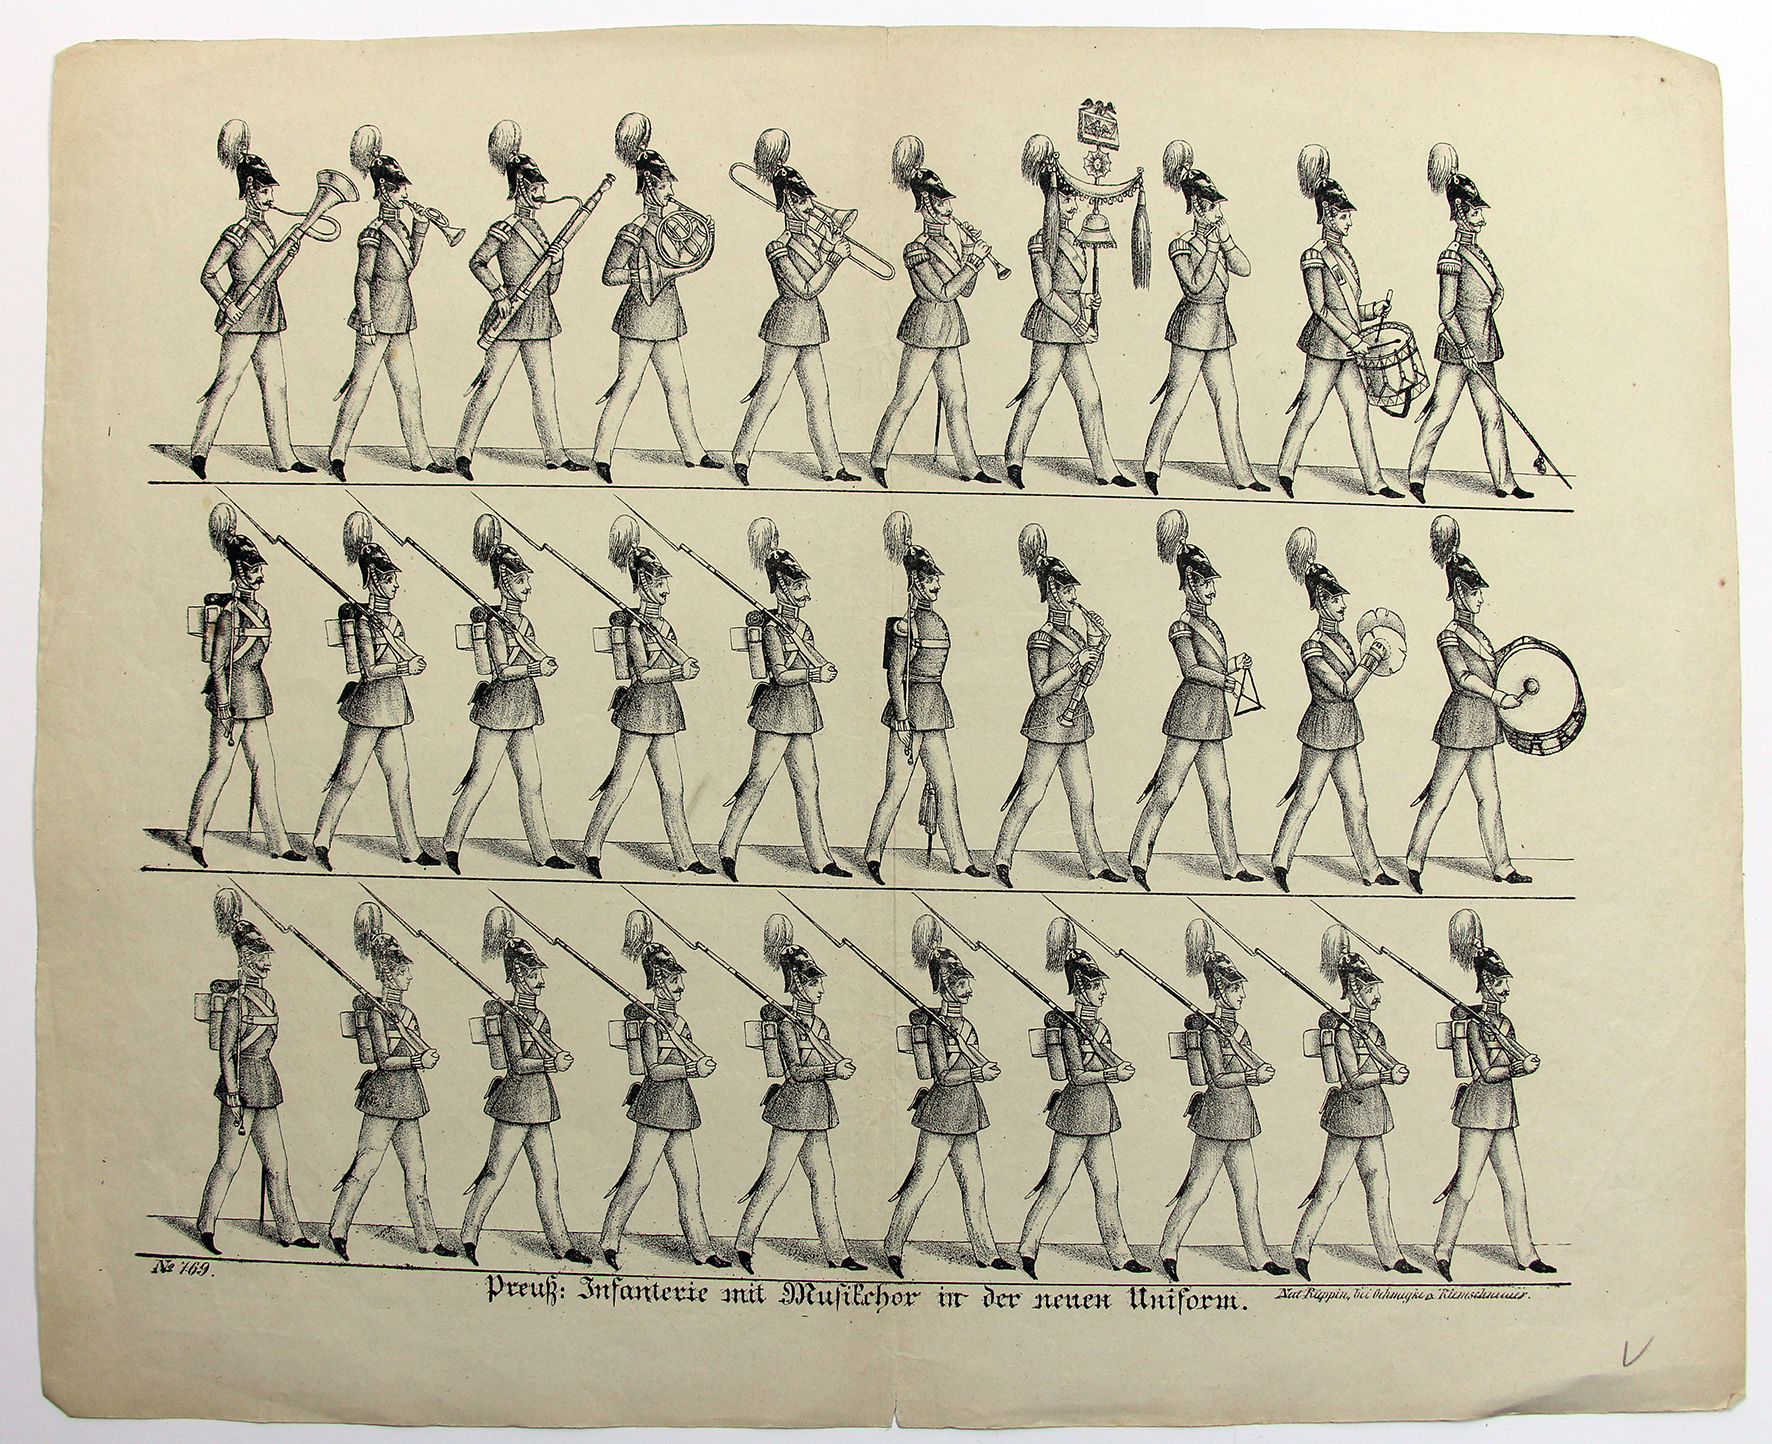 No 769.
Preuß: Infanterie mit Musikchor in der neuen Uniform.
Neu-Ruppin, bei Oehmigke & Riemschneider.
V